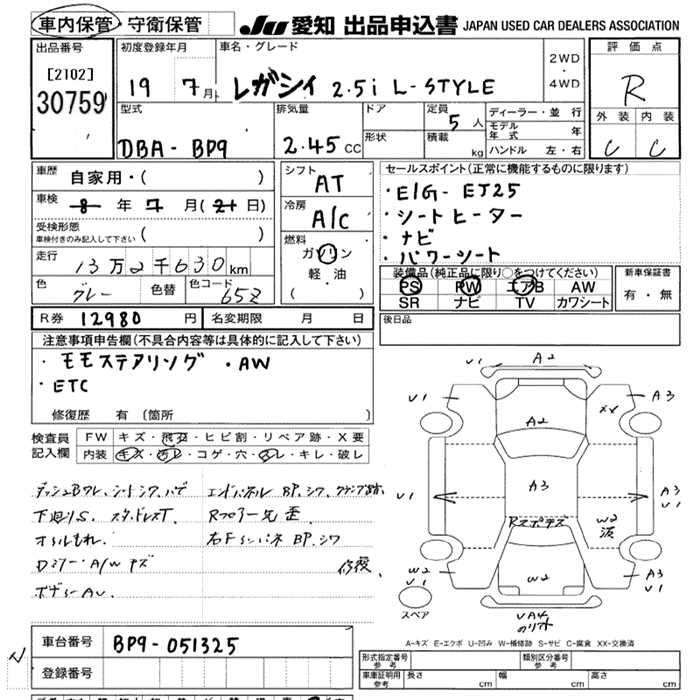 車内保管・守衛保管
JU 愛知 出品申込書 JAPAN USED CAR DEALERS ASSOCIATION
出品番号
[2102]
30759
初度登録年月
19 7月
車名・グレード
レガシィ 2.5i L-STYLE
2WD・4WD
評価点
R
外装 内装
C C
型式
DBA-BP9
排気量
2.45 CC
ドア
形状
定員
5人
積載
kg
ディーラー・並行
モデル年式 年
ハンドル 左・右
車歴
自家用・( )
車検
8年7月(21日)
受検形態
車検付きのみ記入して下さい ( )
走行
13万2千630km
色
グレー
色替
色コード
65Z
シフト
AT
冷房
A/C
燃料
ガソリン
軽油
( ・ )
セールスポイント(正常に機能するものに限ります)
・E/G-EJ25
・シートヒーター
・ナビ
・パワーシート
装備品(純正品に限り○をつけてください)
PS PW エアB AW
SR ナビ TV カワシート
新車保証書
有・無
R券 12980円
名変期限 月 日
後日品
注意事項申告欄(不具合内容等は具体的に記入して下さい)
・モモステアリング ・AW
・ETC
修復歴 有(箇所 )
検査員記入欄
FW キズ・飛石・ヒビ割・リペア跡・X要
内装 キズ・汚レ・コゲ・穴・スレ・キレ・破レ
下廻りS. スタッドレスT.
オイルもれ.
Dミラー・A/Wキズ
ボディーAU.
エンドパネル BP.シワ.クランプ跡
Rフロアー先歪
右Fインパネ BP.シワ
修復.
A2
U1
A3
XX
A2
U1
A3
A3
U1
Rスポキズ
W2
W2
U1
W2
A3
U1
スペア
A-キズ E-エクボ U-凹み W-補修跡 S-サビ C-腐食 XX-交換済
車台番号 BP9-051325
登録番号
型式指定番号 参考
類別区分番号 参考
車庫証明用 参考
長さ cm
幅 cm
高さ cm